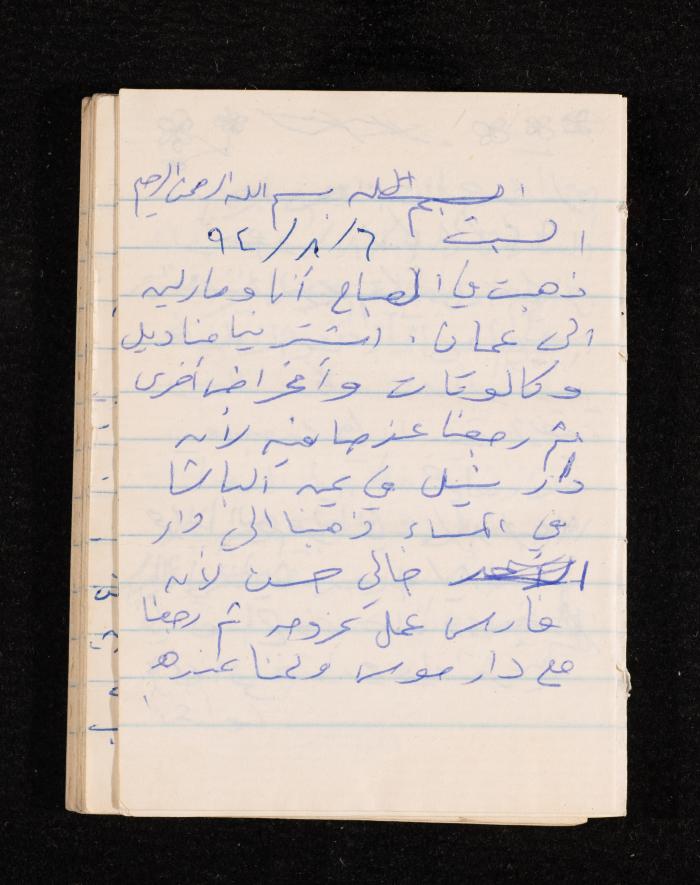 بسم الله الرحمن الرحيم
السبت ٦/٨/٩٤
ذهبت في الصباح أنا ومارلين
الى عمان. اشترينا مناديل
وكالوتات وأغراض أخرى
ثم رجعنا عند صافيه لأنه
دار شبل في عين الباشا
في المساء ذهبنا الى دار
خالي حسن لأنه
فارس عمل عزومه ثم رجعنا
مع دار موسى ونمنا عندهم